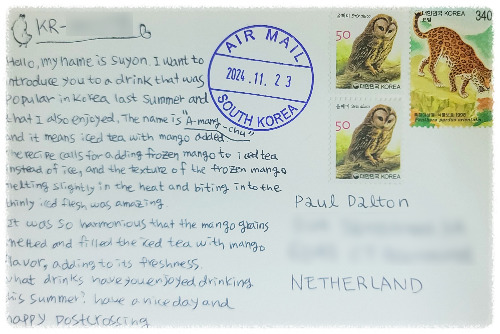 KR-
Hello, my name is Suyon. I want to
introduce you to a drink that was
popular in Korea last summer and
that I also enjoyed. The name is "A-mang-chu"
and it means iced tea with mango added.
The recipe calls for adding frozen mango to iced tea
instead of ice, and the texture of the frozen mango
melting slightly in the heat and biting into the
thinly iced flesh was amazing.
It was so harmonious that the mango grains
melted and filled the iced tea with mango
flavor, adding to its freshness.
what drinks have you enjoyed drinking
this summer? have a nice day and
happy postcrossing
AIR MAIL
2024. 11. 23
SOUTH KOREA
50
대한민국 KOREA
50
대한민국 KOREA
대한민국 KOREA
표범
340
Paul Dalton
NETHERLAND